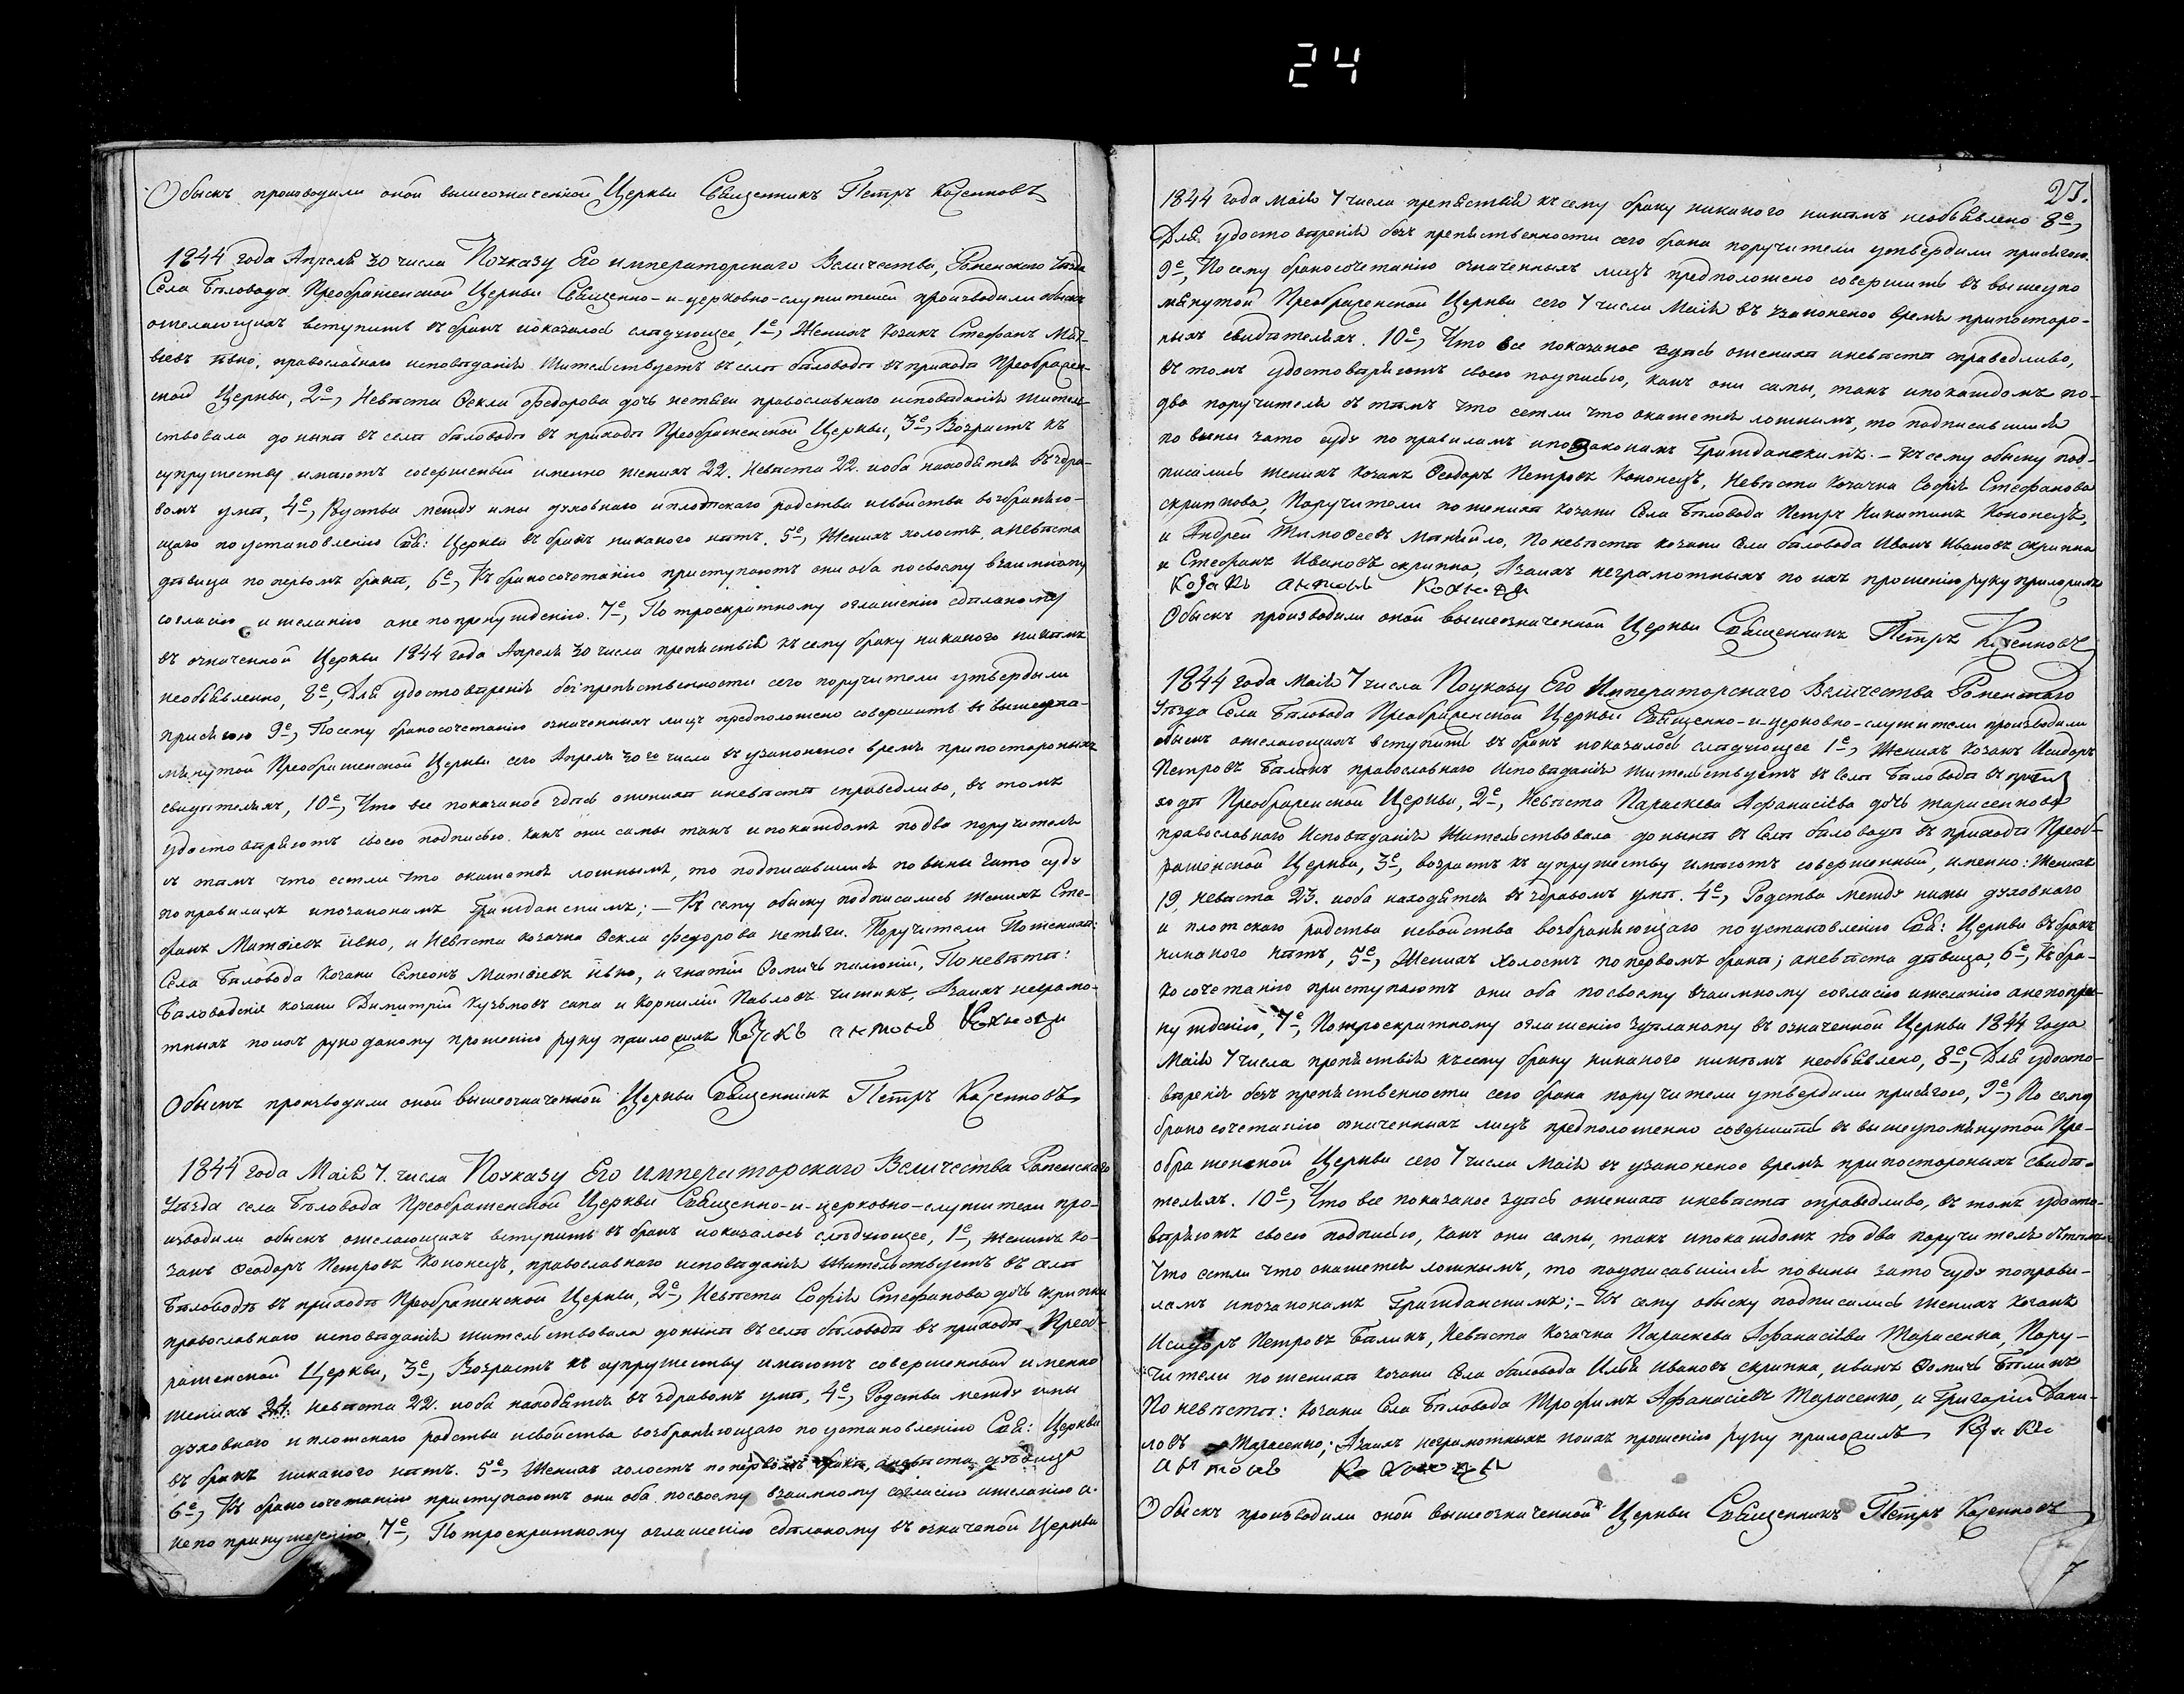 24
Обыскъ производили оной вышеозначенной Церкви Священникъ Петръ
1844 года Апреля 30 числа По указу Его императорскаго Величества, Роменскаго Уезда
Села Бѣловода Преображенской Церкви Священно-и-церковно-служители производили обыскъ
ожелающихъ вступить въ бракъ иоказалось слѣдующее, 1е, Женихъ козакъ Стефанъ Мат-
вѣевъ православнаго исповѣданія жительствуетъ въ селѣ бѣловодѣ въ приходѣ Преображен-
ской Церкви, 2е, Невѣста Ѳекла Федорова дочь нетяги православнаго исповѣданія житель-
ствовала донынѣ въ селѣ бѣловодѣ въ приходѣ Преображенской Церкви, 3е, Возрастъ къ
супружеству имѣютъ совершеный именно женихъ 22. Невѣста 22. иоба находятся въ здра-
вомъ умѣ, 4е, Родства между ими духовнаго иплотскаго родства исвойства возбраняю-
щаго поустановленію Свя: Церкви въ бракъ никакого нѣтъ. 5е, Женихъ холостъ, аневѣста
дѣвица по первомъ бракѣ, 6е, Къ бракосочетанію приступаютъ они оба посвоему взаимному
согласію и желанію ане попринужденію. 7е, По троекратному оглашенію сдѣланому
въ означенной Церкви 1844 года Апреля 30 числа препятствія къ сему браку никакого никѣмъ
необъявленно, 8е, Для удостовѣренія безпрепятственности сего поручители утвердили
присягою 9е, Посему бракосочетанію означенныхъ лицъ предположено совершить въ вышеупо-
мянутой Преображенской Церкви сего Апреля 30го числа въ узаконеное время припостороныхъ
свидетеляхъ, 10е, Что все показаное здѣсь ожених иневѣстѣ справедливо, въ томъ
удостовѣряютъ своею подписью какъ они самы такъ ипокаждомъ подва поручителя
съ тѣмъ что естли что окажется ложнымъ, то подписавшися повины зато суду
поправиламъ ипозаконамъ Гражданскимъ; — Къ сему обыску подписались женихъ Сте-
фанъ Матвѣевъ и Невѣста козачка Ѳекла Федорова нетяги. Поручители Поженихѣ:
Села Бѣловода козаки Семеонъ Матвѣевъ и гнатій Ѳомичъ Поневѣстѣ:
бѣловодскіе козаки Димитрій Кузьмовъ сапа и Корнилій Павловъ Азаихъ неграмо-
тныхъ поихъ рукоданому прошенію руку приложилъ
Обыскъ производили оной вышеозначенной Церкви Священникъ Петръ
1844 года Маія 7. числа По указу Его императорскаго Величества Роменскаго
Уѣзда села Бѣловода Преображенской Церкви Священно-и-церковно-служители про-
изводили обыскъ ожелающихъ вступить въ бракъ иоказалось слѣдующее, 1е, женихъ ко-
закъ Ѳеодоръ Петровъ Кононецъ, православнаго исповѣданія жительствуетъ въ селѣ
Бѣловодѣ въ приходѣ Преображенской Церкви, 2е, Невѣста Софія Стефанова дочь скрипки
православнаго исповѣданія жительствовала донынѣ въ селѣ бѣловодѣ въ приходѣ Преоб-
раженской Церкви, 3е, Возрастъ къ супружеству имѣютъ совершенный именно
женихъ 24. невѣста 22. иоба находятся въ здравомъ умѣ, 4е, Родства между ими
духовнаго иплотскаго родства исвойства возбраняющаго поустановленію Свя: Церкви
въ бракъ никакого нѣтъ. 5е, Женихъ холостъ попервомъ бракѣ, аневѣста дѣвица
6е, Къ бракосочетанію приступаютъ они оба посвоему взаимному согласію ижеланію а-
непо принужденію, 7е, По троекратному оглашенію сдѣланому въ означеной Церкви
1844 года маія 7 числа препятствія къ сему браку никакого никѣмъ необъявлено 8е,
Для удостовѣренія безъ препятственности сего брака поручители утвердили присягою.
9е, Посему бракосочетанію означенныхъ лицъ предположено совершить въ вышеупо
мянутой Преображенской Церкви сего 7 числа Маія въ узаконеное время припосторо-
ныхъ свидѣтеляхъ. 10е, Что все показаное здѣсь оженихѣ иневѣстѣ справедливо,
въ томъ удостовѣряютъ своею подписью, какъ они самы, такъ ипокаждомъ по-
два поручителя съ тѣмъ что естли что окажется ложнымъ, то подписавшися
повины зато суду по правиламъ ипозаконамъ Гражданскимъ. — Къ сему обыску под-
писались женихъ козакъ Ѳеодоръ Петровъ Кононецъ, Невѣста козачка Софія Стефанова
скрипкова, Поручители поженихѣ козаки Села Бѣловода Петръ Никитинъ Кононецъ,
и Андрей Тимоѳеевъ Поневѣстѣ козаки Села бѣловода Иванъ Ивановъ скрипка
и Стефанъ Ивановъ скрипка, Азаихъ неграмотныхъ по ихъ прошенію руку приложилъ
Козакъ антонъ
Обыскъ производили оной вышеозначенной Церкви Священникъ Петръ
1844 года Маія 7 числа По указу Его Императорскаго Величества Роменскаго
Уѣзда Села Бѣловода Преображенской Церкви Священно-и-церковно-служители производили
обыскъ ожелающихъ вступить въ бракъ иоказалось слѣдующее 1е, Женихъ козакъ Исидоръ
Петровъ Баликъ православнаго Исповѣданія жительствуетъ въ селѣ Бѣловодѣ въ при
ходѣ Преображенской Церкви, 2е, Невѣста Параскева Афанасіева дочь тарасенкова
православнаго Исповѣданія Жительствовала донынѣ въ Селѣ бѣловодѣ въ приходѣ Преоб-
раженской Церкви, 3е, возрастъ къ супружеству имѣютъ совершенный, именно: Женихъ
19, невѣста 23. иоба находятся въ здравомъ умѣ. 4е, Родства между ними духовнаго
и плотскаго родства исвойства возбраняющаго поустановленію Свя: Церкви въ бракъ
никакого нѣтъ, 5е, Женихъ холостъ попервомъ бракѣ; аневѣста дѣвица, 6е, Къ бра-
косочетанію приступаютъ они оба посвоему взаимному согласію ижеланію анепопри-
нужденію, 7е, Потроекратному оглашенію здѣланому въ означенной Церкви 1844 года
Маія 7 числа препятствія къ сему браку никакого никѣмъ необъявлено, 8е, Для удосто-
вѣренія безъ препятственности сего брака поручители утвердили присягою, 9е, По сему
бракосочетанію означенныхъ лицъ предположенно совершить въ вышеупомянутой Пре-
ображенской Церкви сего 7 числа Маія въ узаконеное время припостороныхъ свидѣ-
теляхъ. 10е, Что все показаное здѣсь оженихѣ иневѣстѣ справедливо, въ томъ удосто-
вѣряютъ своею подписью, какъ они самы, такъ ипокаждомъ подва поручителя сътѣмъ
что естли что окажется ложнымъ, то подписавшійся повины зато суду поправи-
ламъ ипозаконамъ Гражданскимъ; — Къ сему обыску подписались женихъ козакъ
Исидоръ Петровъ Баликъ, Невѣста козачка Параскева Афанасіева Тарасенка, Пору-
чители поженихѣ козаки Села бѣловода Илья Ивановъ скрипка, иванъ Ѳомичъ
Поневѣстѣ: козаки Села Бѣловода Трофимъ Афанасіевъ Тарасенко, и Григорій Дани-
ловъ Тарасенко; Азаихъ неграмотныхъ поихъ прошенію руку приложилъ
антонъ
Обыскъ производили оной вышеозначенной Церкви Священникъ Петръ
7